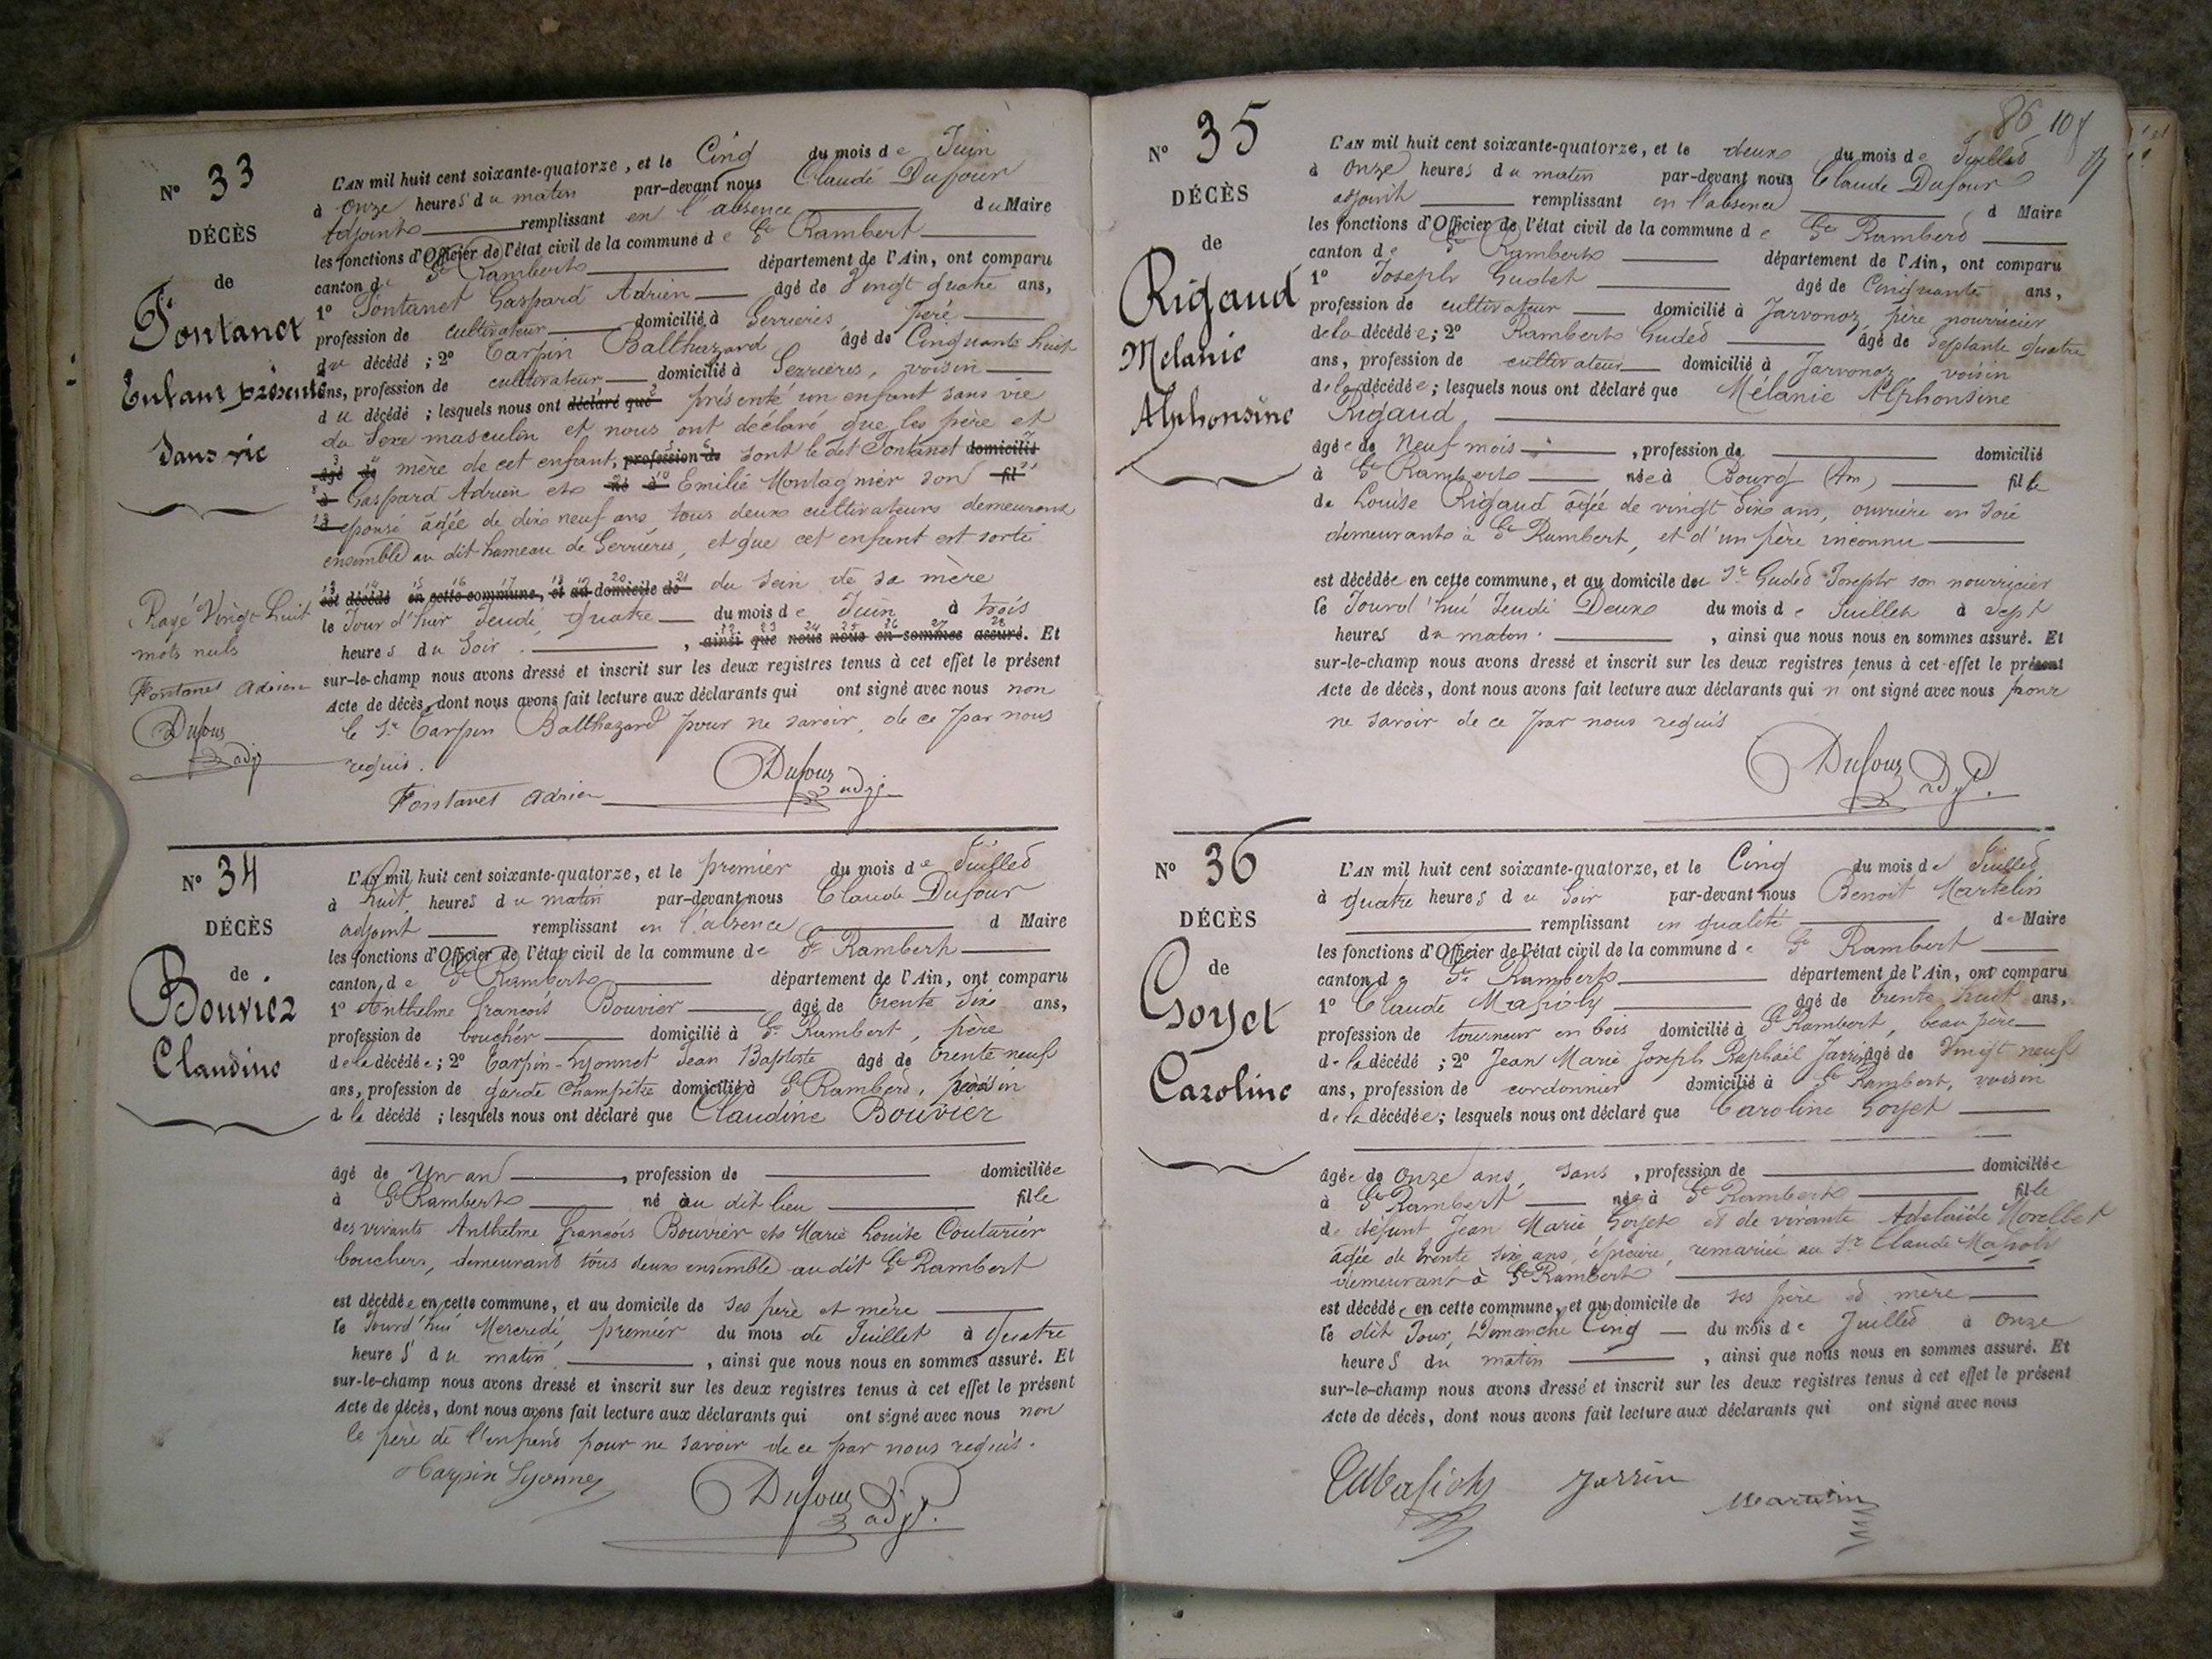 N° 33
DÉCÈS
de
Fontanet
Enfant présenté
Sans vie
Rayé Vingt-huit
mots nuls
Fontanet Adrien
Dufour
adj
L'AN mil huit cent soixante-quatorze, et le Cinq du mois de Juin
à onze heures du matin par-devant nous Claude Dufour
adjoint remplissant en l'absence du Maire
les fonctions d'Officier de l'état civil de la commune de St Rambert
canton de St Rambert département de l'Ain, ont comparu
1° Fontanet Gaspard Adrien âgé de Vingt quatre ans,
profession de cultivateur domicilié à Serrières, père
du décédé ; 2° Tarpin Balthazard âgé de Cinquante huit
ans, profession de cultivateur domicilié à Serrières, voisin
du décédé ; lesquels nous ont déclaré que présenté un enfant sans vie
du sexe masculin et nous ont déclaré que les père et
âgé de mère de cet enfant, profession de sont le dit Fontanet domicilié
à Gaspard Adrien et né à Emilie Montagnier son fil
épouse âgée de dix neuf ans, tous deux cultivateurs demeurant
ensemble au dit hameau de Serrières, et que cet enfant est sorti
est décédé en cette commune, et au domicile de du sein de sa mère
le Jour d'hier Jeudi, quatre du mois de Juin à trois
heures du Soir, ainsi que nous nous en sommes assuré. Et
sur-le-champ nous avons dressé et inscrit sur les deux registres tenus à cet effet le présent
Acte de décès, dont nous avons fait lecture aux déclarants qui ont signé avec nous non
le Sr Tarpin Balthazard pour ne savoir, de ce par nous
requis.
Fontanet Adrien Dufour adj.
N° 34
DÉCÈS
de
Bouvier
Claudine
L'AN mil huit cent soixante-quatorze, et le premier du mois de Juillet
à huit heures du matin par-devant nous Claude Dufour
adjoint remplissant en l'absence d Maire
les fonctions d'Officier de l'état civil de la commune de St Rambert
canton de St Rambert département de l'Ain, ont comparu
1° Anthelme François Bouvier âgé de trente six ans,
profession de boucher domicilié à St Rambert, père
de la décédée ; 2° Tarpin-Lyonnet Jean Baptiste âgé de trente neuf
ans, profession de garde champêtre domicilié à St Rambert, voisin
de la décédé ; lesquels nous ont déclaré que Claudine Bouvier
âgé de Un an, profession de domiciliée
à St Rambert né au dit lieu fille
des vivants Anthelme François Bouvier et Marie Louise Couturier
bouchers, demeurant tous deux ensemble audit St Rambert
est décédée en cette commune, et au domicile de ses père et mère
le Jourd'hui Mercredi, premier du mois de Juillet à quatre
heures du matin, ainsi que nous nous en sommes assuré. Et
sur-le-champ nous avons dressé et inscrit sur les deux registres tenus à cet effet le présent
Acte de décès, dont nous avons fait lecture aux déclarants qui ont signé avec nous non
le père de l'enfant pour ne savoir de ce par nous requis.
Tarpin Lyonnet Dufour adj.
86 108
N° 35
DÉCÈS
de
Rigaud
Melanie
Alphonsine
L'AN mil huit cent soixante-quatorze, et le deux du mois de Juillet
à onze heures du matin par-devant nous Claude Dufour
adjoint remplissant en l'absence d Maire
les fonctions d'Officier de l'état civil de la commune de St Rambert
canton de St Rambert département de l'Ain, ont comparu
1° Joseph Gudet âgé de Cinquante ans,
profession de cultivateur domicilié à Javornoz, père nourricier
de la décédée ; 2° Rambert Gudet âgé de Septante quatre
ans, profession de cultivateur domicilié à Javornoz voisin
de la décédée ; lesquels nous ont déclaré que Mélanie Alphonsine
Rigaud
âgée de Neuf mois, profession de domicilié
à St Rambert née à Bourg (Ain) fille
de Louise Rigaud âgée de vingt six ans, ouvrière en soie
demeurant à St Rambert, et d'un père inconnu
est décédée en cette commune, et au domicile du Sr Gudet Joseph son nourricier
le Jourd'hui Jeudi Deux du mois de Juillet à sept
heures du matin, ainsi que nous nous en sommes assuré. Et
sur-le-champ nous avons dressé et inscrit sur les deux registres tenus à cet effet le présent
Acte de décès, dont nous avons fait lecture aux déclarants qui n ont signé avec nous pour
ne savoir de ce par nous requis
Dufour adj.
N° 36
DÉCÈS
de
Goyet
Caroline
L'AN mil huit cent soixante-quatorze, et le Cinq du mois de Juillet
à quatre heures du Soir par-devant nous Benoit Martelin
remplissant en qualité de Maire
les fonctions d'Officier de l'état civil de la commune de St Rambert
canton de St Rambert département de l'Ain, ont comparu
1° Claude Mapoly âgé de trente huit ans,
profession de tourneur en bois domicilié à St Rambert, beau père
de la décédé ; 2° Jean Marie Joseph Raphaël Jarrin âgé de Vingt neuf
ans, profession de cordonnier domicilié à St Rambert, voisin
de la décédée ; lesquels nous ont déclaré que Caroline Goyet
âgée de Onze ans, sans, profession de domiciliée
à St Rambert née à St Rambert fille
de défunt Jean Marie Goyet et de vivante Adelaïde Morellet
âgée de trente six ans, épicière, remariée au Sr Claude Mapoly
demeurant à St Rambert
est décédée en cette commune, et au domicile de ses père et mère
le dit Jour, Dimanche Cinq du mois de Juillet à onze
heures du matin, ainsi que nous nous en sommes assuré. Et
sur-le-champ nous avons dressé et inscrit sur les deux registres tenus à cet effet le présent
Acte de décès, dont nous avons fait lecture aux déclarants qui ont signé avec nous
Jarrin Martelin